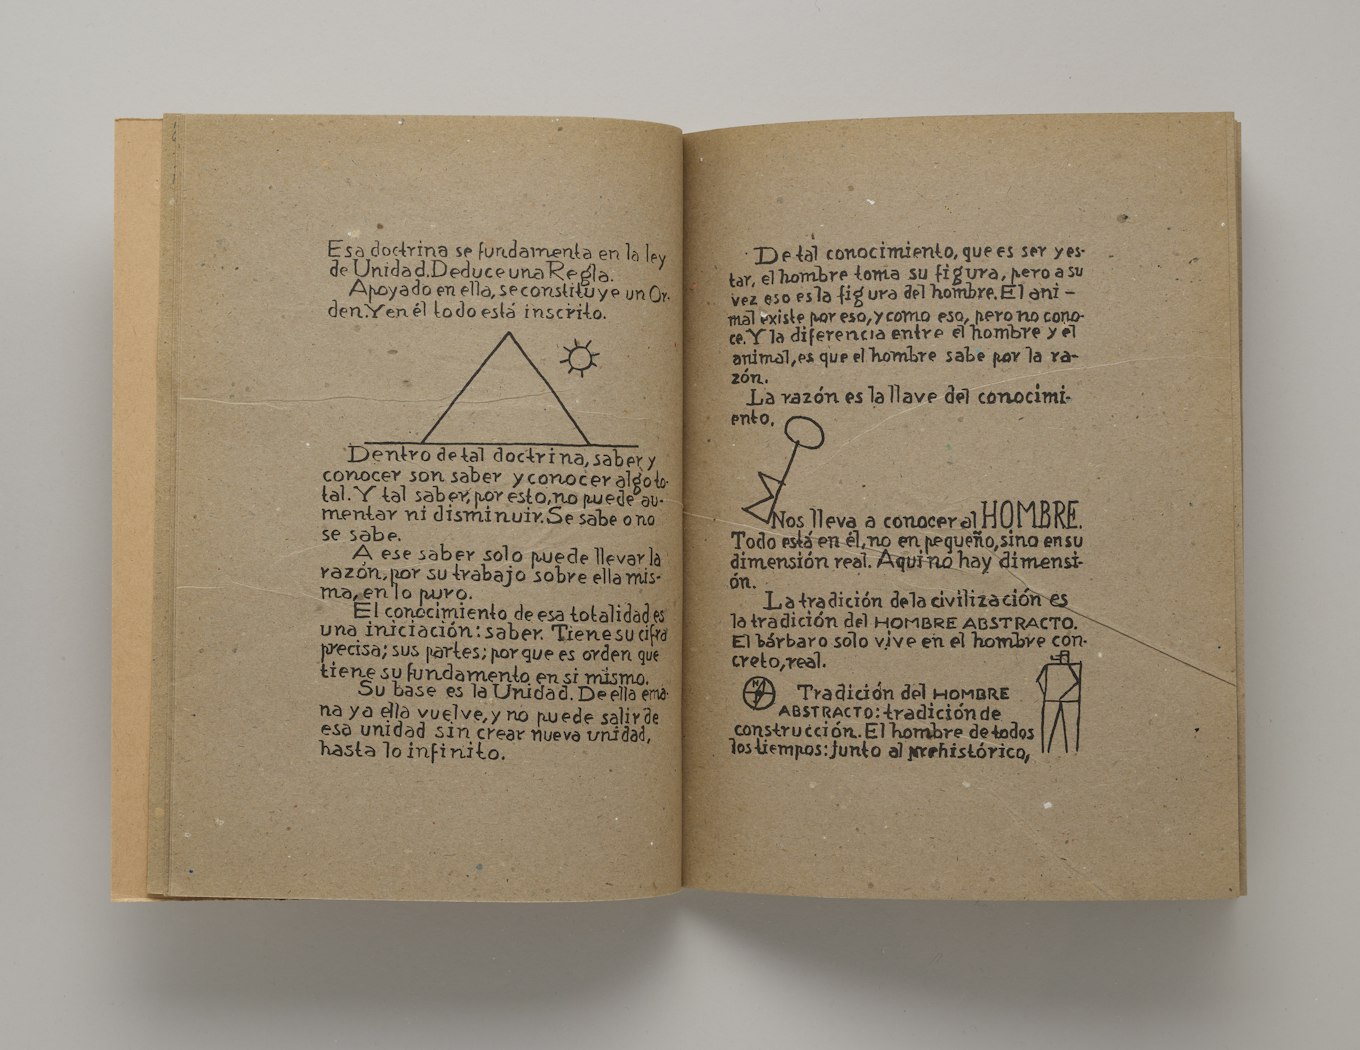 Esa doctrina se fundamenta en la ley
de Unidad. Deduce una Regla.
Apoyado en ella, se constituye un Or-
den. Y en él todo está inscrito.
Dentro de tal doctrina, saber y
conocer son saber y conocer algo to-
tal. Y tal saber, por esto, no puede au-
mentar ni disminuir. Se sabe o no
se sabe.
A ese saber solo puede llevar la
razón, por su trabajo sobre ella mis-
ma, en lo puro.
El conocimiento de esa totalidad es
una iniciación: saber. Tiene su cifra
precisa; sus partes; por que es orden que
tiene su fundamento en si mismo.
Su base es la Unidad. De ella ema-
na y a ella vuelve, y no puede salir de
esa unidad sin crear nueva unidad,
hasta lo infinito.
De tal conocimiento, que es ser y es-
tar, el hombre toma su figura, pero a su
vez eso es la figura del hombre. El ani-
mal existe por eso, y como eso, pero no cono-
ce. Y la diferencia entre el hombre y el
animal, es que el hombre sabe por la ra-
zón.
La razón es la llave del conocimi-
ento.
Nos lleva a conocer al HOMBRE.
Todo está en él, no en pequeño, sino en su
dimensión real. Aqui no hay dimensi-
ón.
La tradición de la civilización es
la tradición del HOMBRE ABSTRACTO.
El bárbaro solo vive en el hombre con-
creto, real.
Tradición del HOMBRE
ABSTRACTO: tradición de
construcción. El hombre de todos
los tiempos: junto al prehistórico,